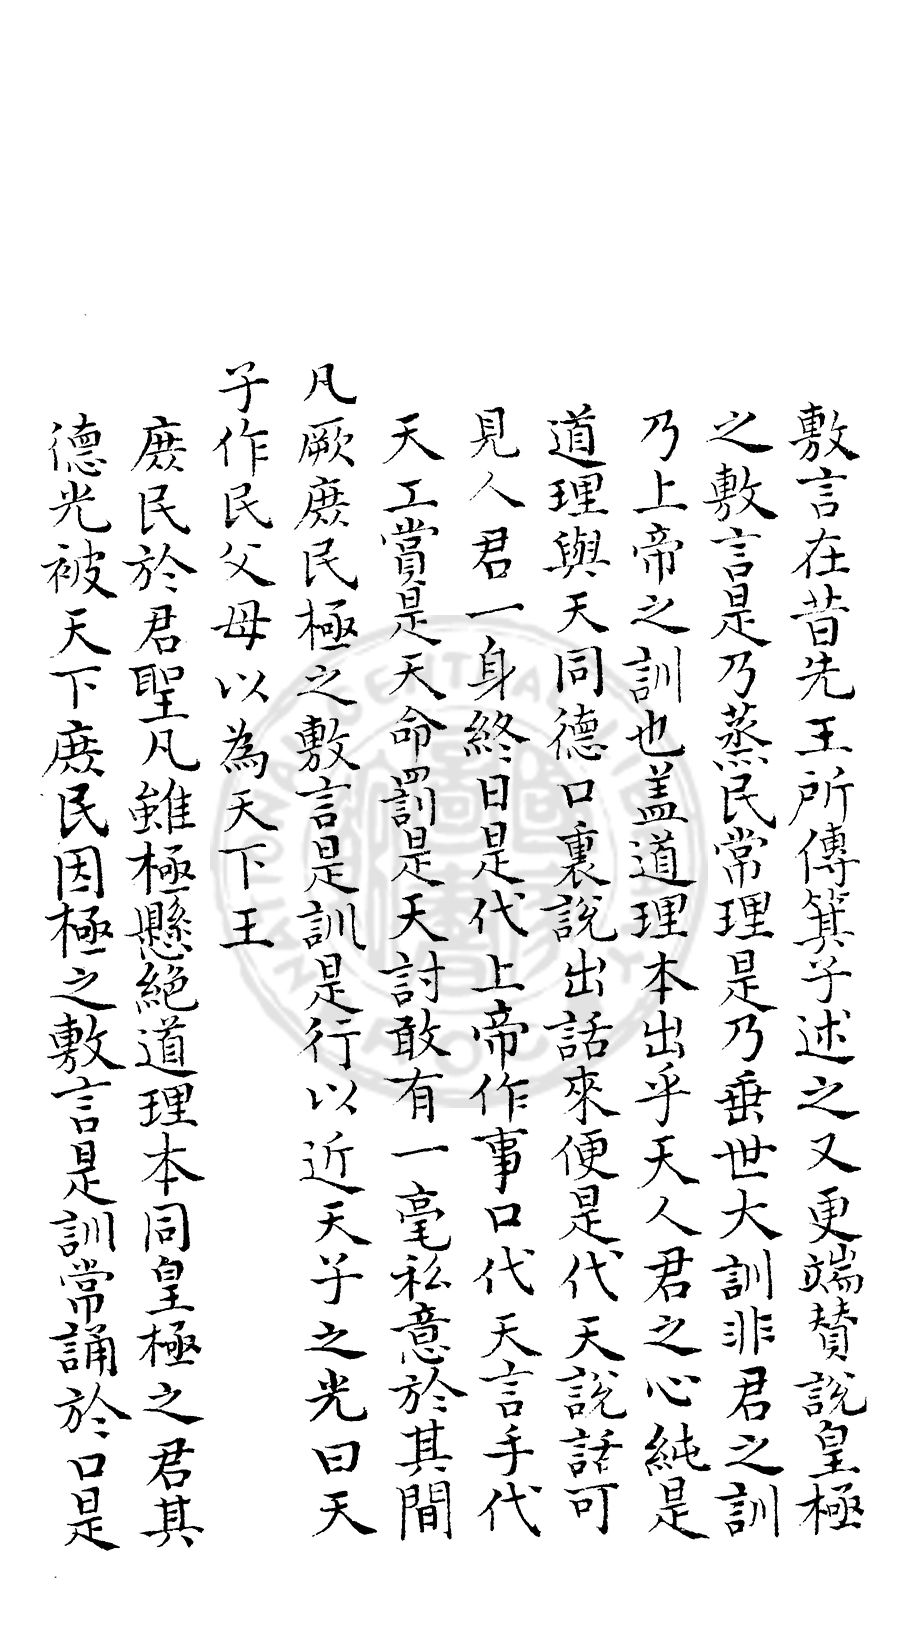 敷言在昔先王所傳箕子述之又更端贊說皇極
之敷言是乃蒸民常理是乃垂世大訓非君之訓
乃上帝之訓也盖道理本出乎天人君之心純是
道理與天同德口裏說出話來便是代天說話可
見人君一身終日是代上帝作事口代天言手代
天工賞是天命罰是天討敢有一毫私意於其間
凡厥庶民極之敷言是訓是行以近天子之光曰天
子作民父母以為天下王
庶民於君聖凡雖極懸絕道理本同皇極之君其
德光被天下庶民因極之敷言是訓常誦於口是